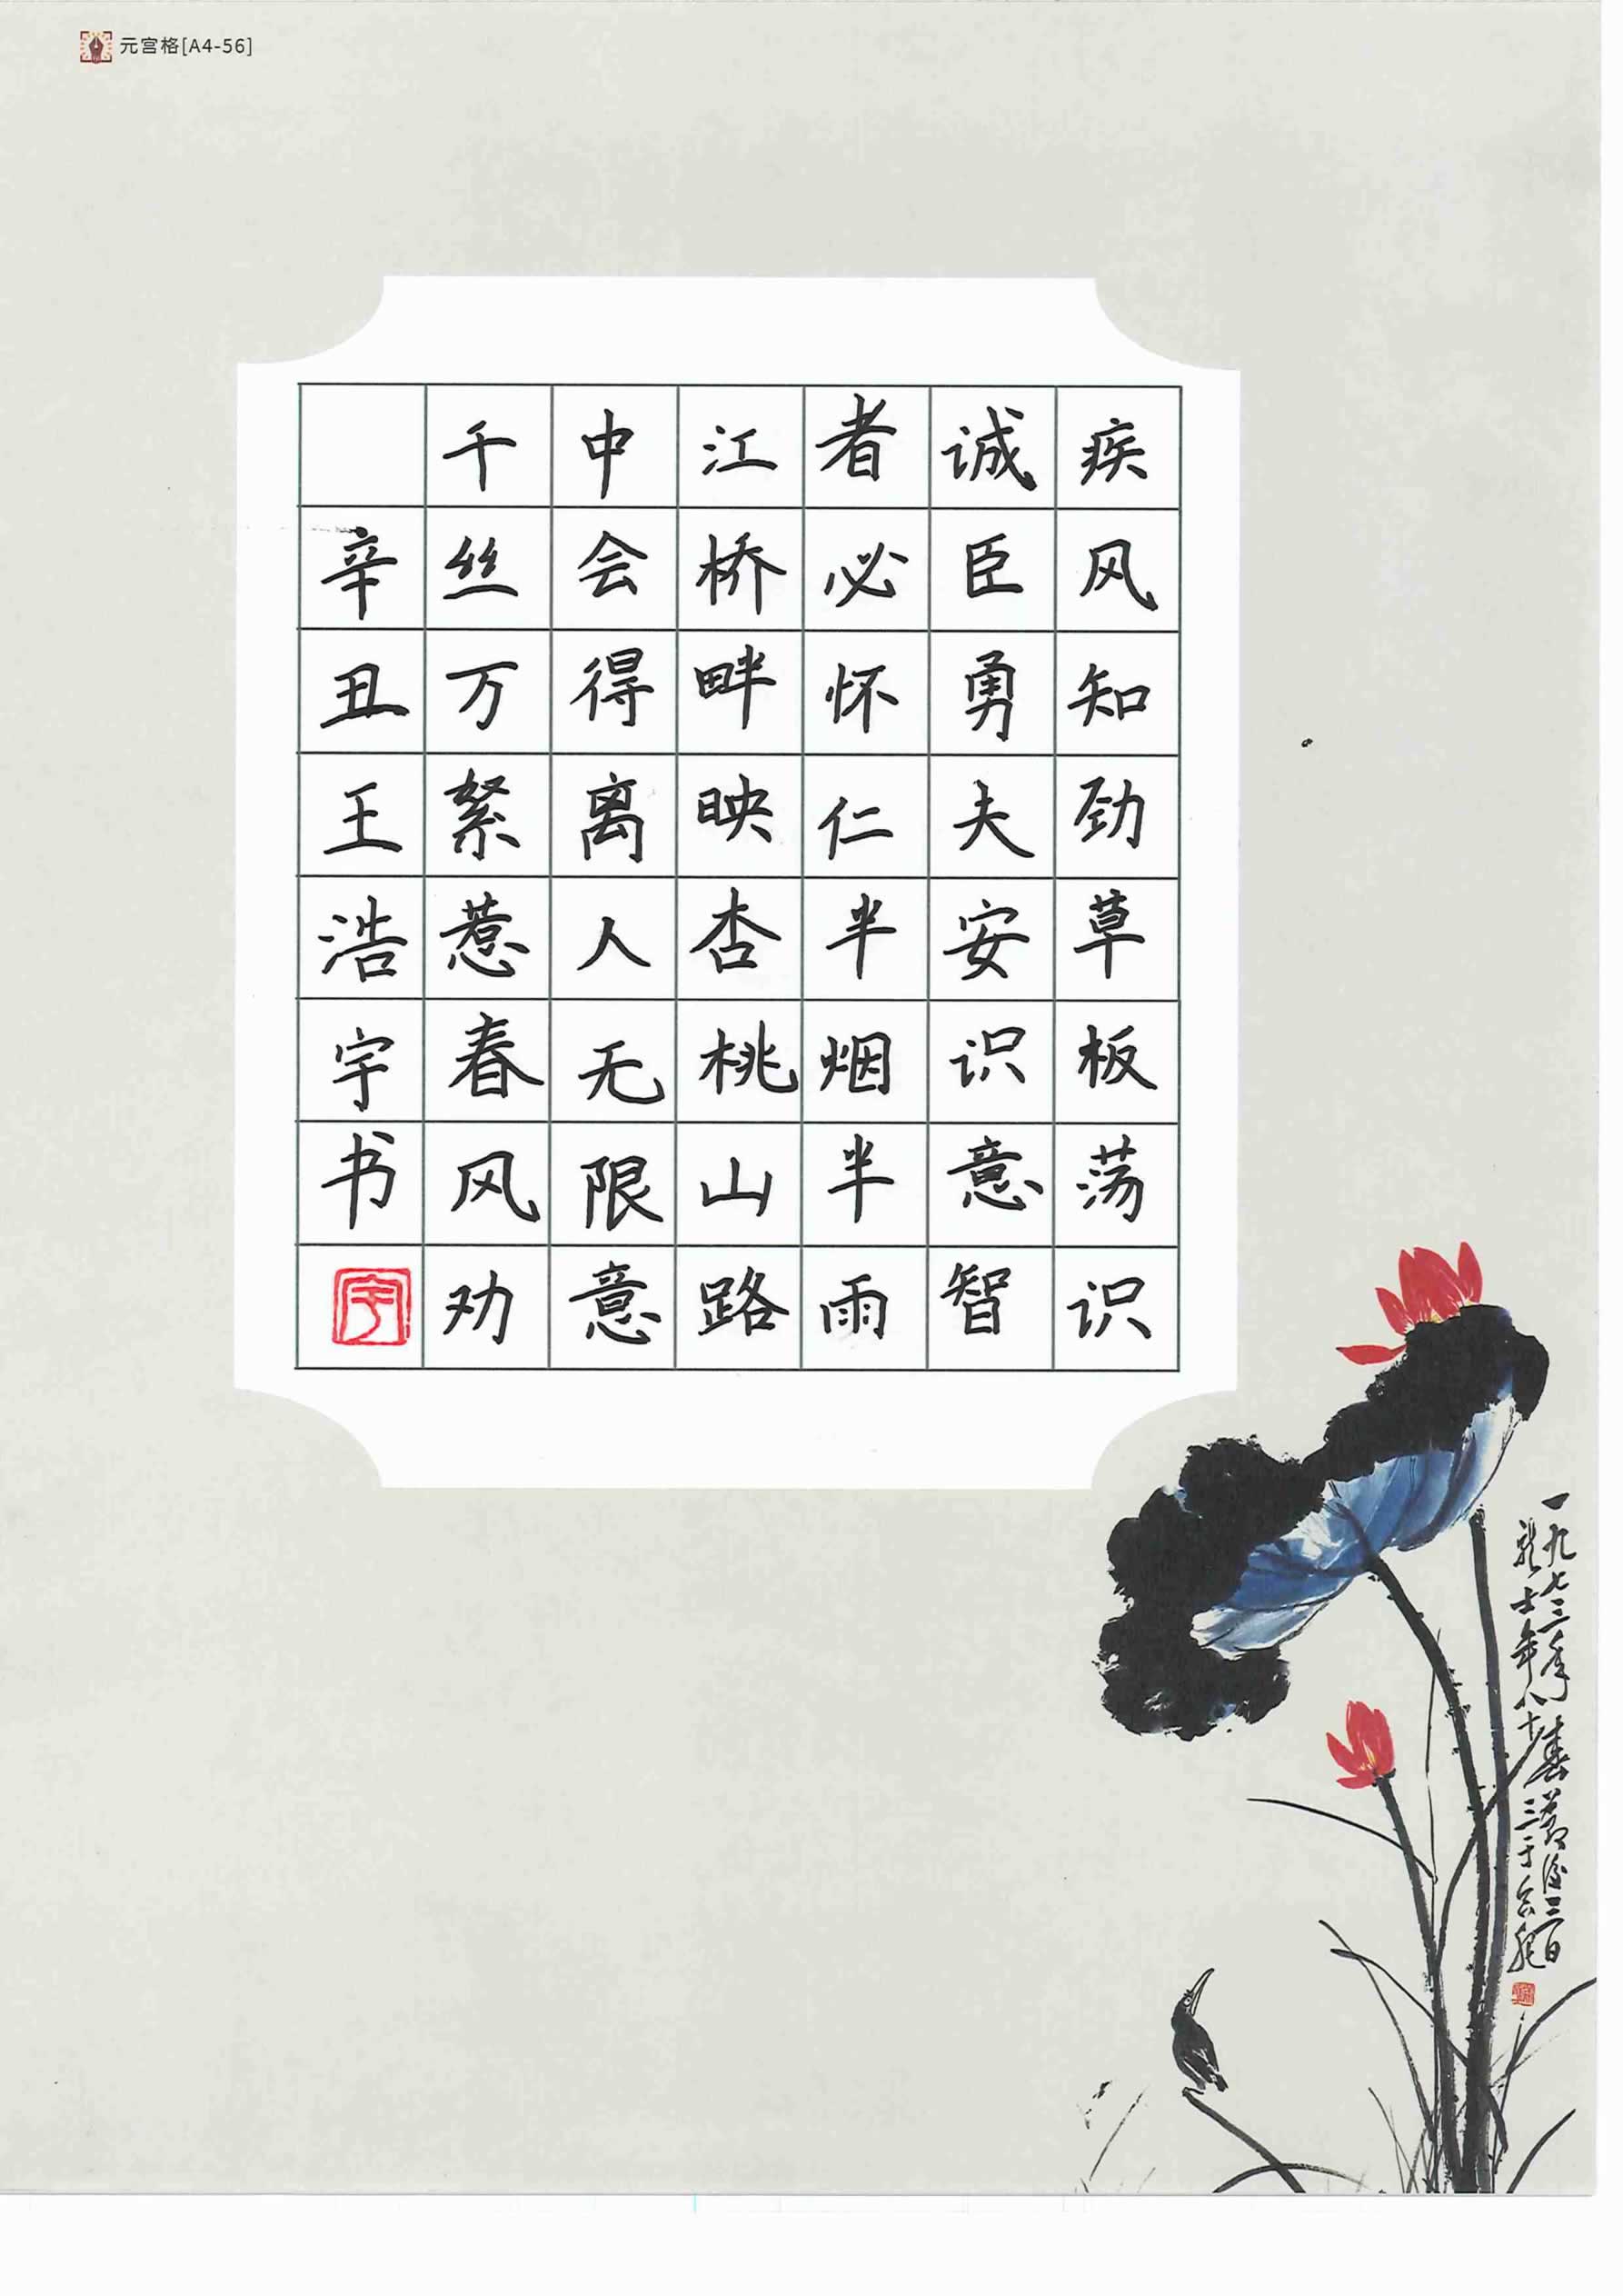 元宫格[A4-56]
疾风知劲草板荡识
诚臣勇夫安识意智
者必怀仁半烟半雨
江桥畔映杏桃山路
中会得离人无限意
千丝万絮惹春风劝
辛丑王浩宇书
宇
一九七三年春暮后三百
龙士年八十三于台